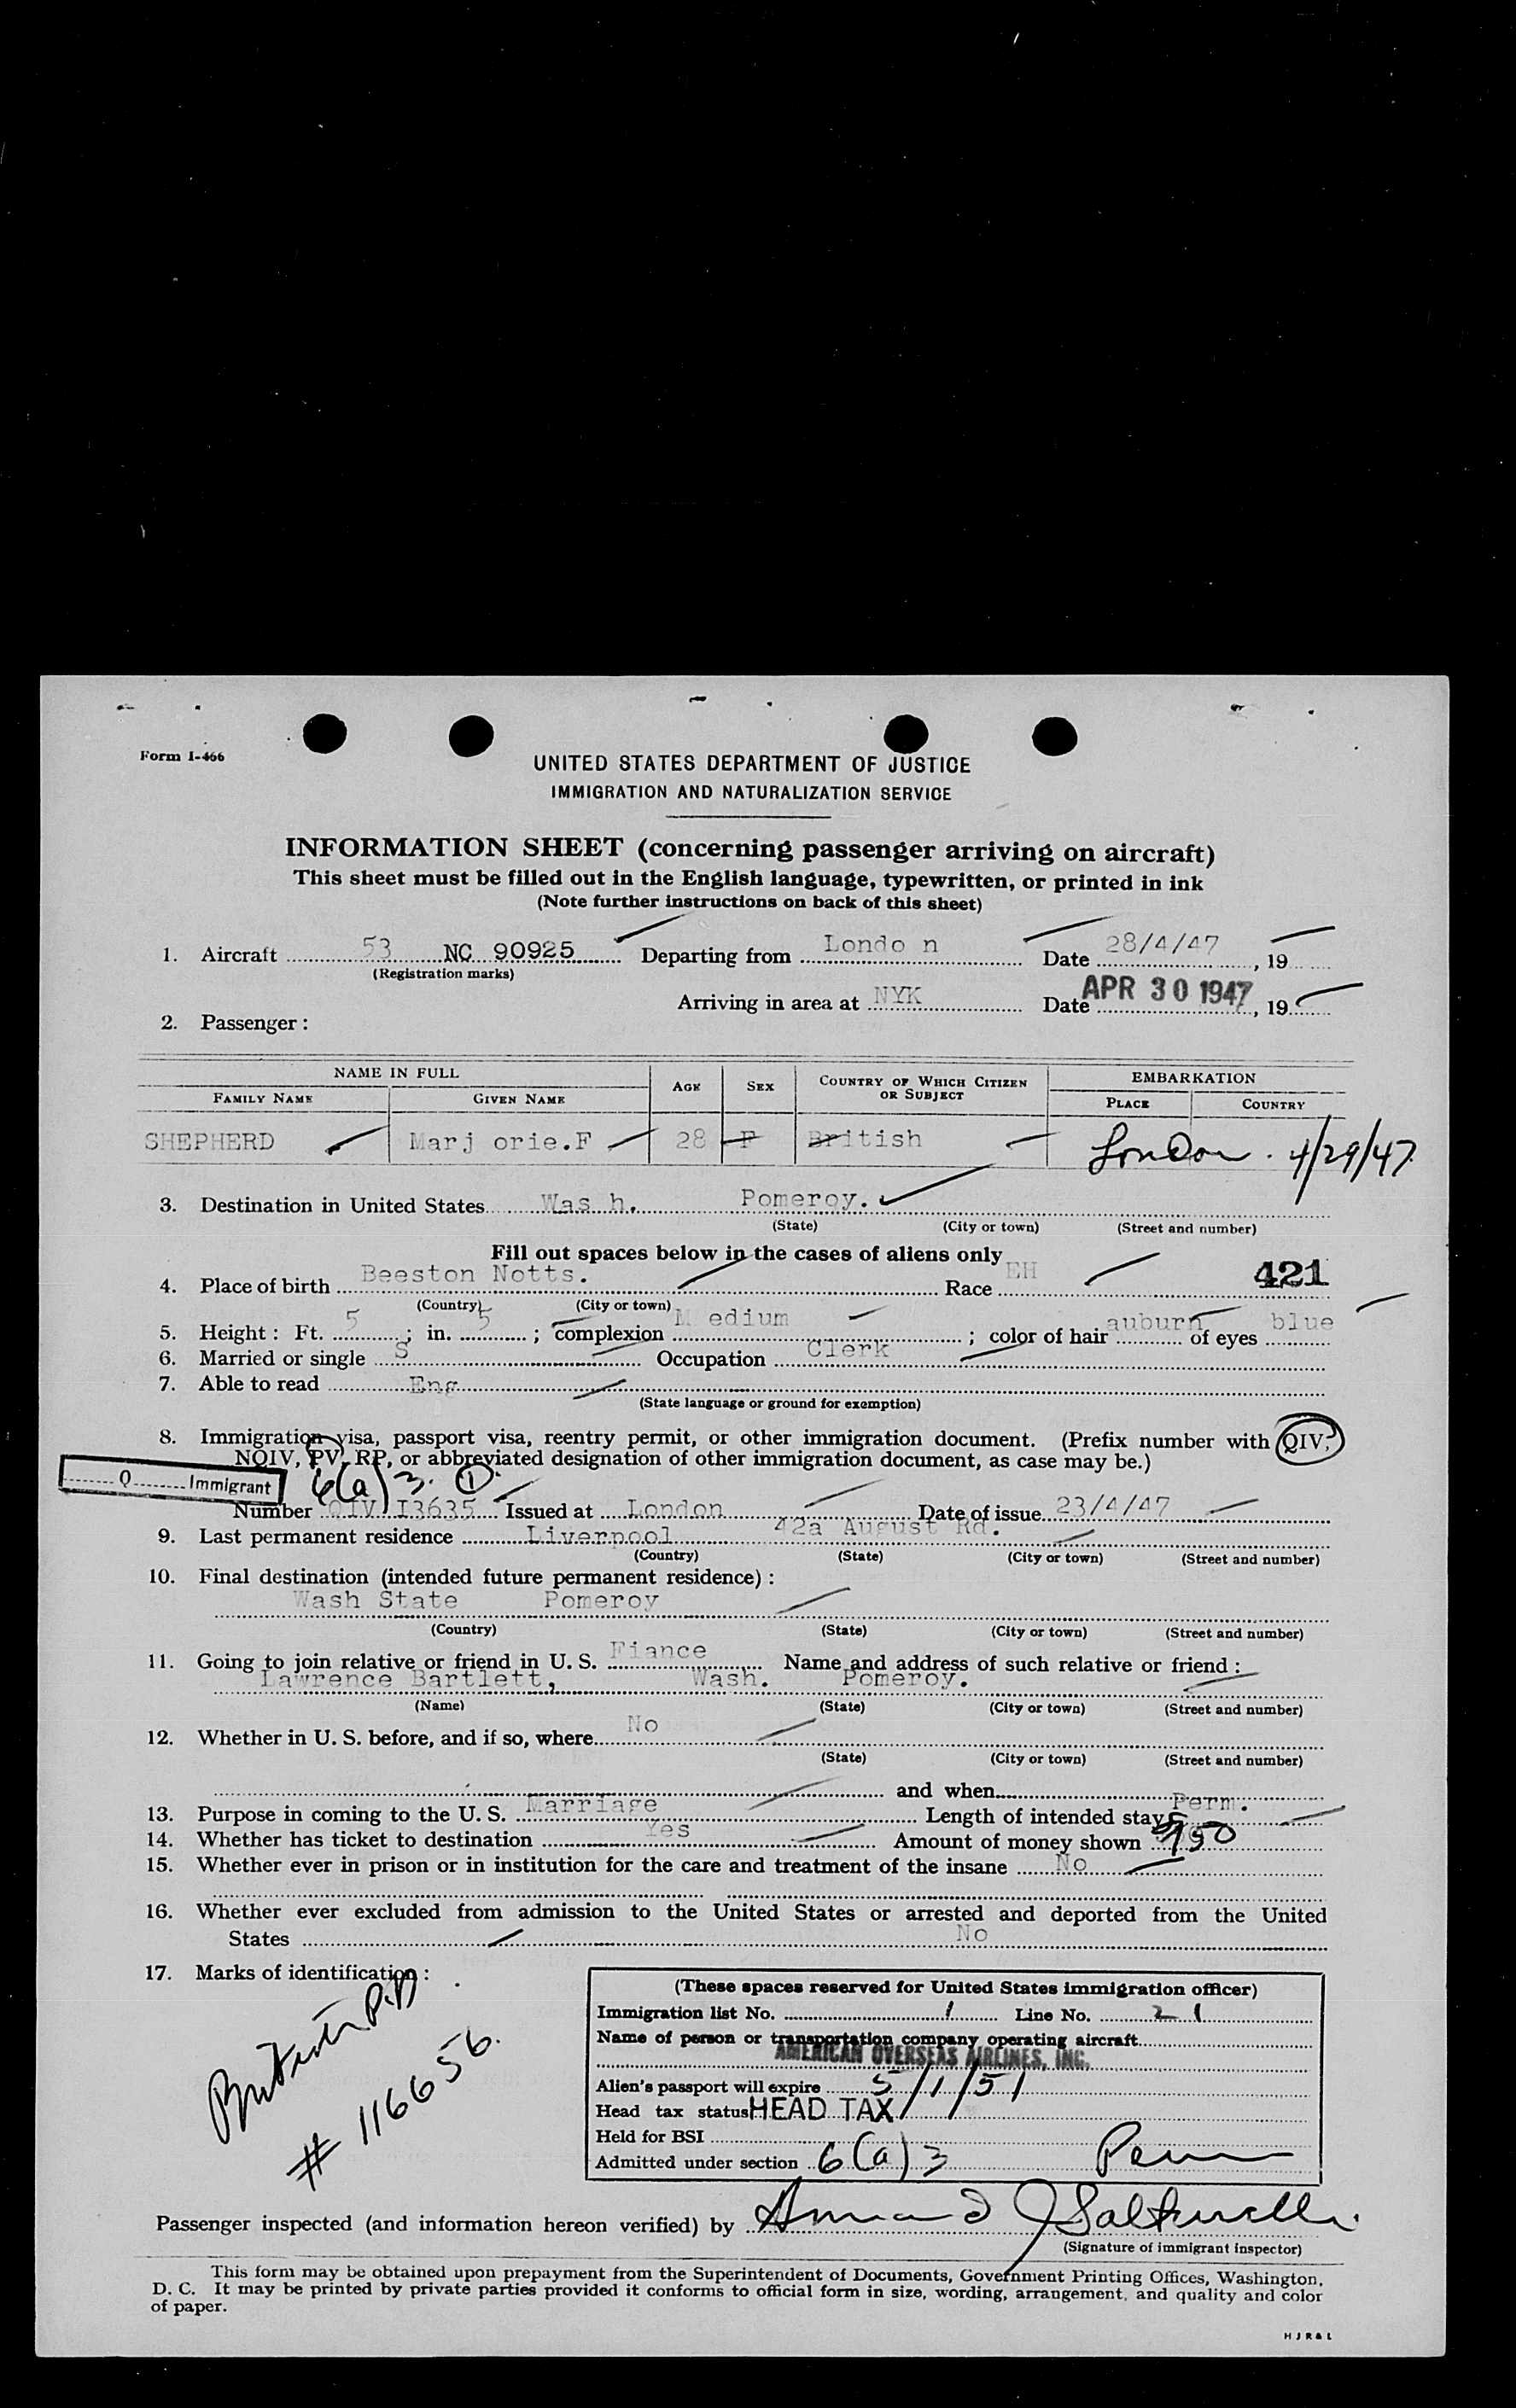 Form I-466
UNITED STATES DEPARTMENT OF JUSTICE
IMMIGRATION AND NATURALIZATION SERVICE
INFORMATION SHEET (concerning passenger arriving on aircraft)
This sheet must be filled out in the English language, typewritten, or printed in ink
(Note further instructions on back of this sheet)
1. Aircraft 53 NC 90925 Departing from Londo n Date 28/4/47, 19
(Registration marks)
Arriving in area at NYK Date APR 30 1947, 19
2. Passenger:
NAME IN FULL AGE SEX COUNTRY OF WHICH CITIZEN OR SUBJECT EMBARKATION
FAMILY NAME GIVEN NAME PLACE COUNTRY
SHEPHERD Marj orie.F 28 F British London. 4/29/47
3. Destination in United States Was h. Pomeroy.
(State) (City or town) (Street and number)
Fill out spaces below in the cases of aliens only
4. Place of birth Beeston Notts. Race EH 421
(Country) (City or town)
5. Height: Ft. 5; in. 5; complexion M edium; color of hair auburn of eyes blue
6. Married or single S Occupation Clerk
7. Able to read Eng
(State language or ground for exemption)
8. Immigration visa, passport visa, reentry permit, or other immigration document. (Prefix number with QIV,
NQIV, PV, RP, or abbreviated designation of other immigration document, as case may be.)
Q Immigrant 6(a) 3. 1
Number QIV I3635 Issued at London Date of issue 23/4/47
9. Last permanent residence Liverpool 42a August Rd.
(Country) (State) (City or town) (Street and number)
10. Final destination (intended future permanent residence):
Wash State Pomeroy
(Country) (State) (City or town) (Street and number)
11. Going to join relative or friend in U. S. Fiance Name and address of such relative or friend:
Lawrence Bartlett, Wash. Pomeroy.
(Name) (State) (City or town) (Street and number)
12. Whether in U. S. before, and if so, where No
(State) (City or town) (Street and number)
and when
13. Purpose in coming to the U. S. Marriage Length of intended stay Perm.
14. Whether has ticket to destination Yes Amount of money shown
15. Whether ever in prison or in institution for the care and treatment of the insane No
16. Whether ever excluded from admission to the United States or arrested and deported from the United
States No
17. Marks of identification:
# 116656.
(These spaces reserved for United States immigration officer)
Immigration list No. 1 Line No. 21
Name of person or transportation company operating aircraft
AMERICAN OVERSEAS AIRLINES, INC.
Alien's passport will expire 5/1/51
Head tax status HEAD TAX
Held for BSI
Admitted under section 6(a)3 Perm
Passenger inspected (and information hereon verified) by
(Signature of immigrant inspector)
This form may be obtained upon prepayment from the Superintendent of Documents, Government Printing Offices, Washington,
D. C. It may be printed by private parties provided it conforms to official form in size, wording, arrangement, and quality and color
of paper.
H J R & L